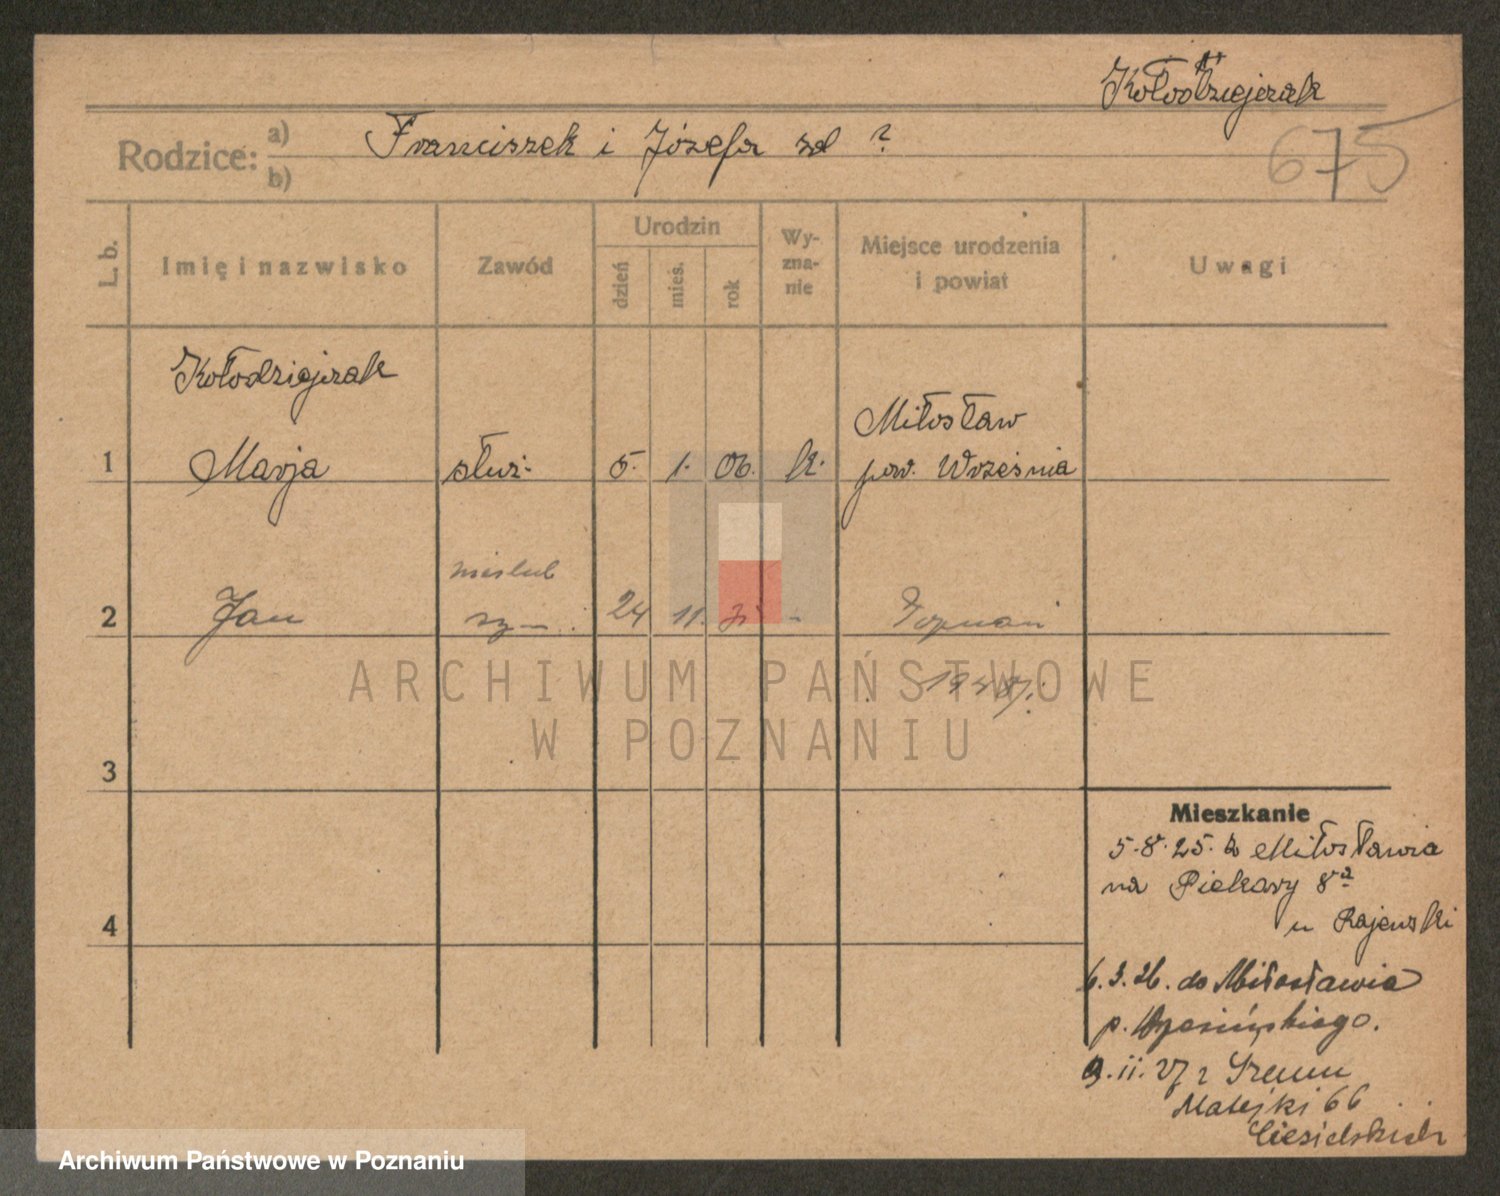 Kołodziejczak
675
Rodzice: a) Franciszek i Józefa zd ?
b)
L. b.
Imię i nazwisko
Zawód
Urodzin
dzień
mies.
rok
Wy-
zna-
nie
Miejsce urodzenia
i powiat
Uwagi
Kołodziejczak
1 Marja służ. 5. 1. 06. k. Miłosław
pow. Września
nieslub
2 Jan sy 24 11. Poznań
3
4
ARCHIWUM PAŃSTWOWE
W POZNANIU
Mieszkanie
5.8.25. z Miłosławia
na Piekary 8a
u Rajewski
6.3.26. do Miłosławia
p.
9.11.27 z Śremu
Matejki 66
Ciesielskich
Archiwum Państwowe w Poznaniu